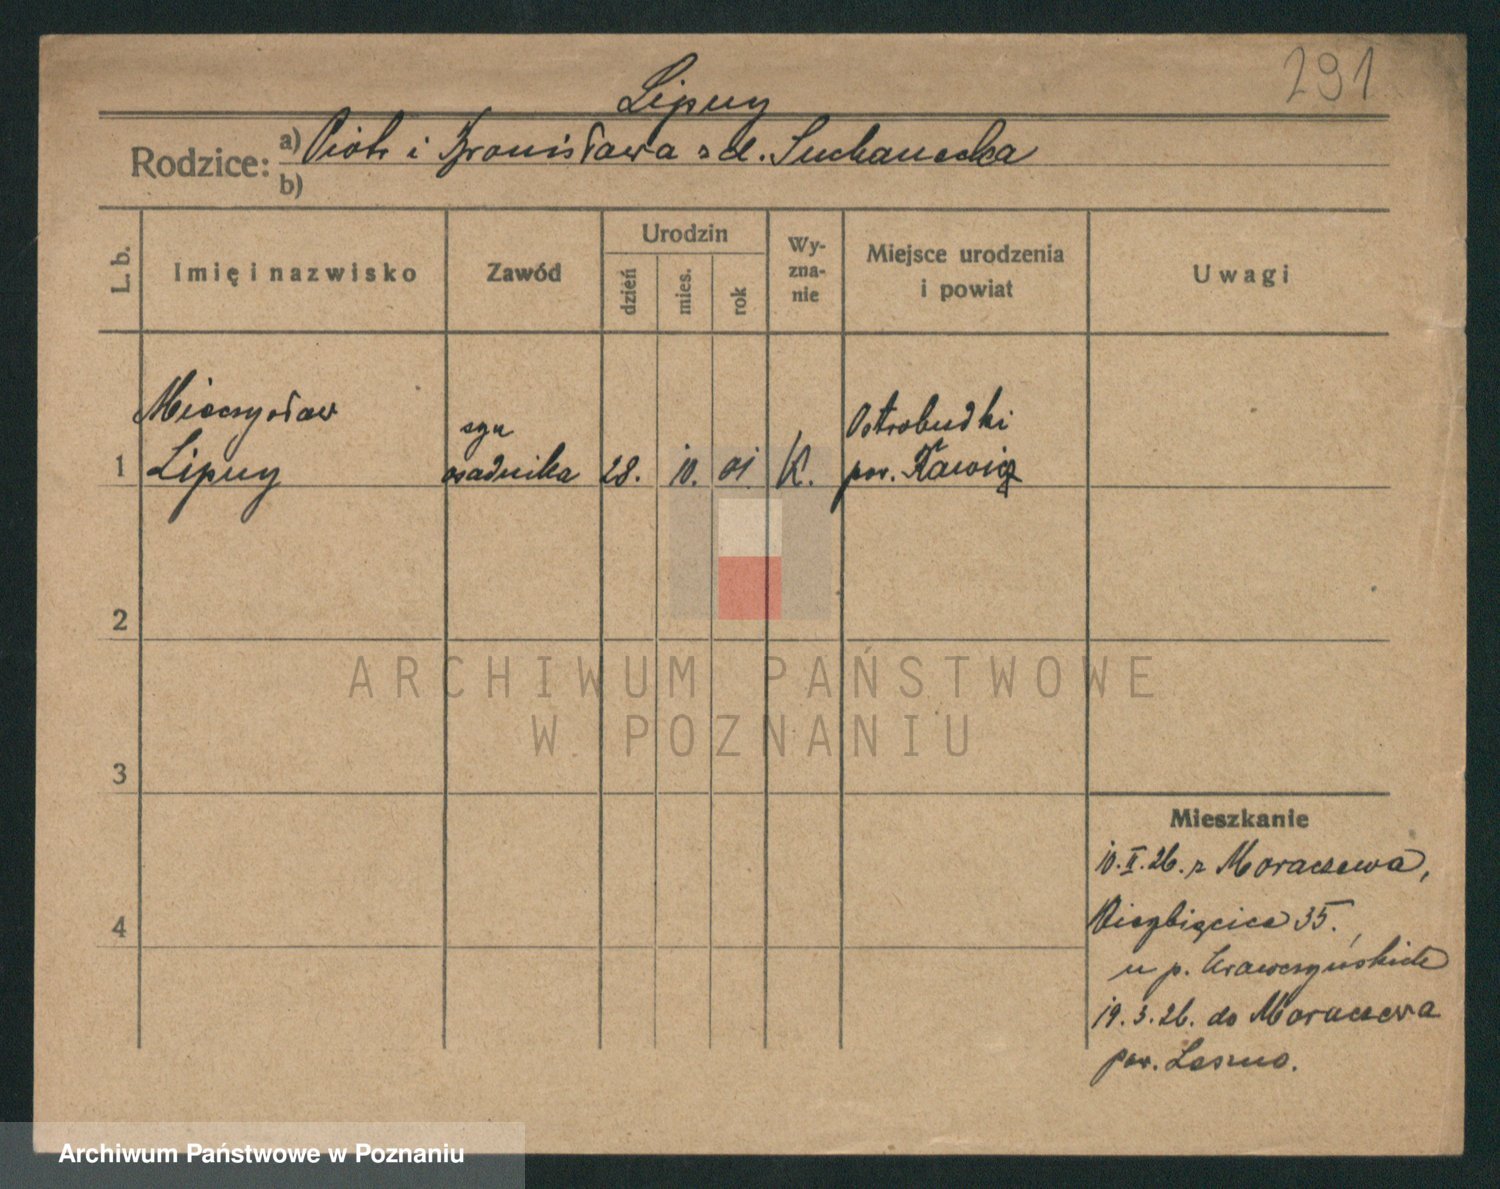 291
Lipny
Rodzice: a) Piotr i Bronisława z d. Suchanecka
b)
L. b.
Imię i nazwisko
Zawód
Urodzin
dzień
mies.
rok
Wy-
zna-
nie
Miejsce urodzenia
i powiat
Uwagi
Mieczysław
syn
Ostrobudki
1 Lipny osadnika 28. 10. 01 K. pow. Rawicz
2
3
4
Mieszkanie
10.II.26. z Moraczewa,
35.
u p. Krawczyńskich
19.3.26. do Moraczewa
pow. Leszno.
ARCHIWUM PAŃSTWOWE
W POZNANIU
Archiwum Państwowe w Poznaniu